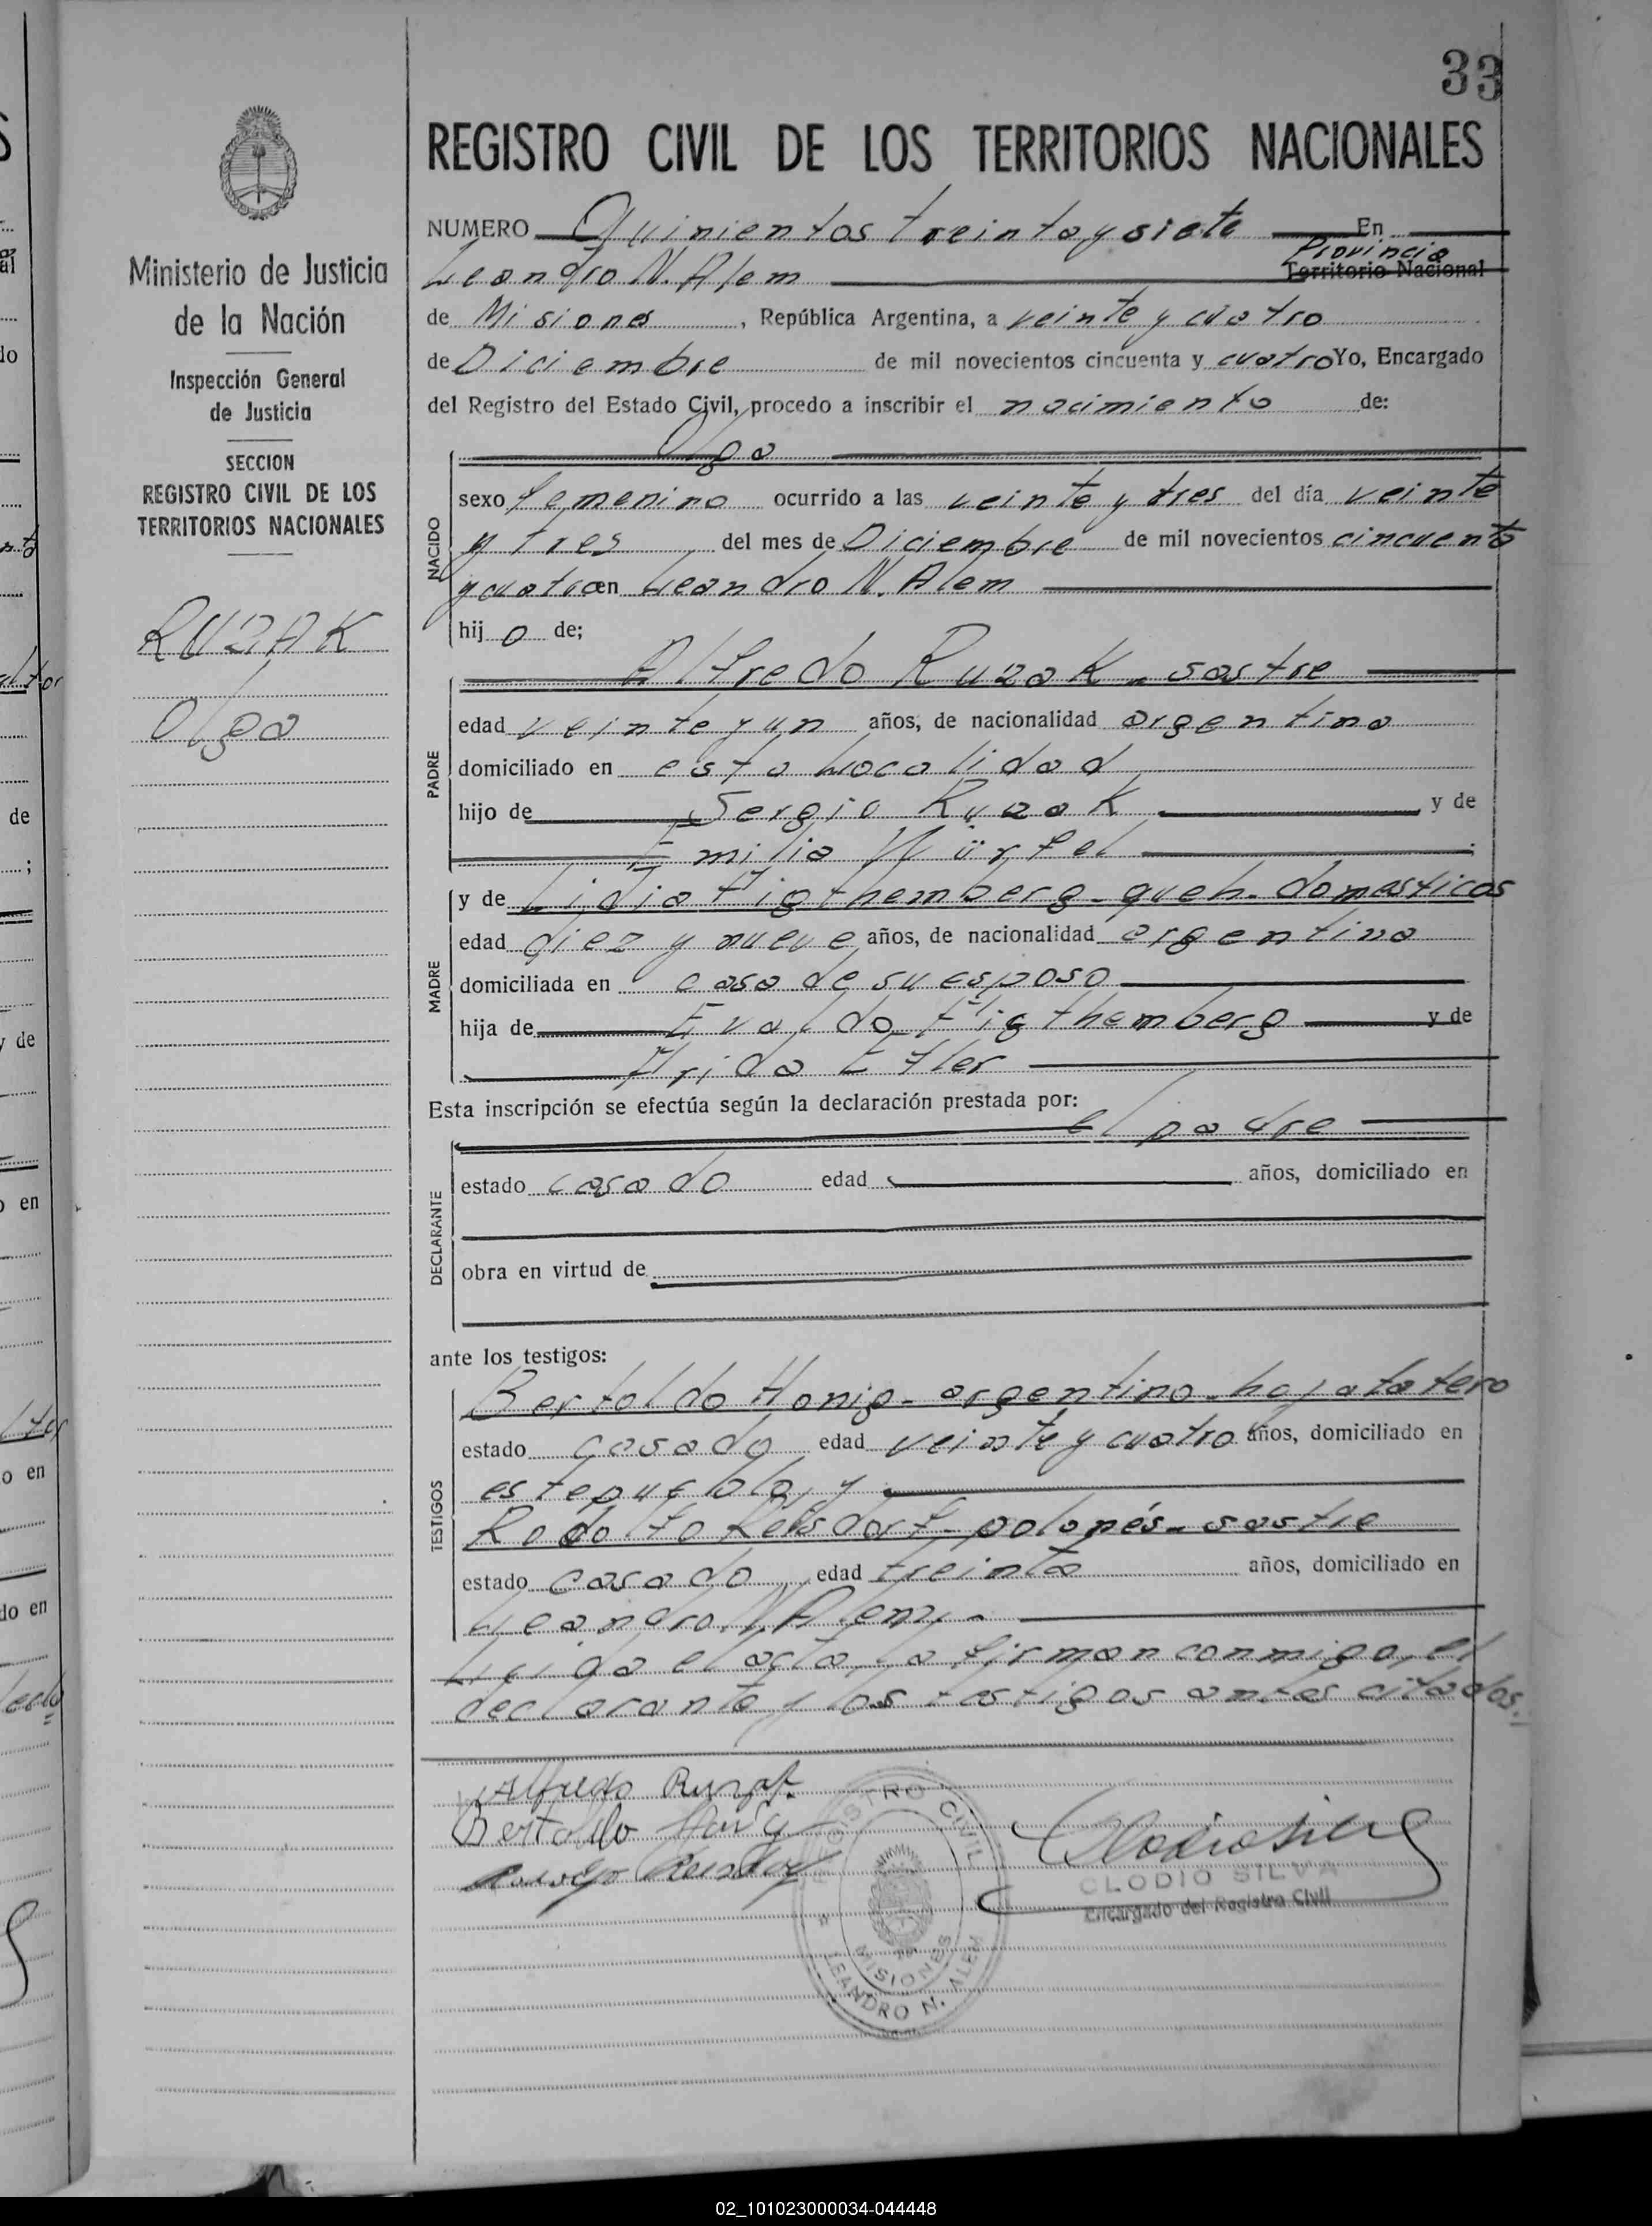 33
REGISTRO CIVIL DE LOS TERRITORIOS NACIONALES
NUMERO Quinientos treinta y siete En
Leandro N. Alem Provincia Territorio Nacional
de Misiones, República Argentina, a veinte y cuatro
de Diciembre de mil novecientos cincuenta y cuatro Yo, Encargado
del Registro del Estado Civil, procedo a inscribir el nacimiento de:
Olga
NACIDO
sexo femenino ocurrido a las veinte y tres del día veinte
y tres del mes de Diciembre de mil novecientos cincuenta
y cuatro en Leandro N. Alem
hij a de;
PADRE
Alfredo Ruzak - sastre
edad veinte y un años, de nacionalidad argentina
domiciliado en esta Localidad
hijo de Sergio Ruzak y de
Emilia Würfel
MADRE
y de Lidia Figthemberg - queh. domesticos
edad diez y nueve años, de nacionalidad argentina
domiciliada en casa de su esposo
hija de Evaldo Figthemberg y de
Frida Etler
Esta inscripción se efectúa según la declaración prestada por:
el padre
DECLARANTE
estado casado edad años, domiciliado en
obra en virtud de
ante los testigos:
TESTIGOS
Bertoldo Honig - argentino - hojalatero
estado casado edad veinte y cuatro años, domiciliado en
este pueblo, y
Rodolfo - polonés - sastre
estado casado edad treinta años, domiciliado en
Leandro N. Alem. -
Leida el acta, la firman conmigo, el
declarante y los testigos antes citados.
Alfredo Ruzak.
Bertoldo Honig
REGISTRO CIVIL
MISIONES
LEANDRO N. ALEM
Clodio Silva
CLODIO SILVA
Encargado del Registro Civil
Ministerio de Justicia
de la Nación
Inspección General
de Justicia
SECCION
REGISTRO CIVIL DE LOS
TERRITORIOS NACIONALES
RUZAK
Olga
de
;
y de
o en
o en
do en
02_101023000034-044448